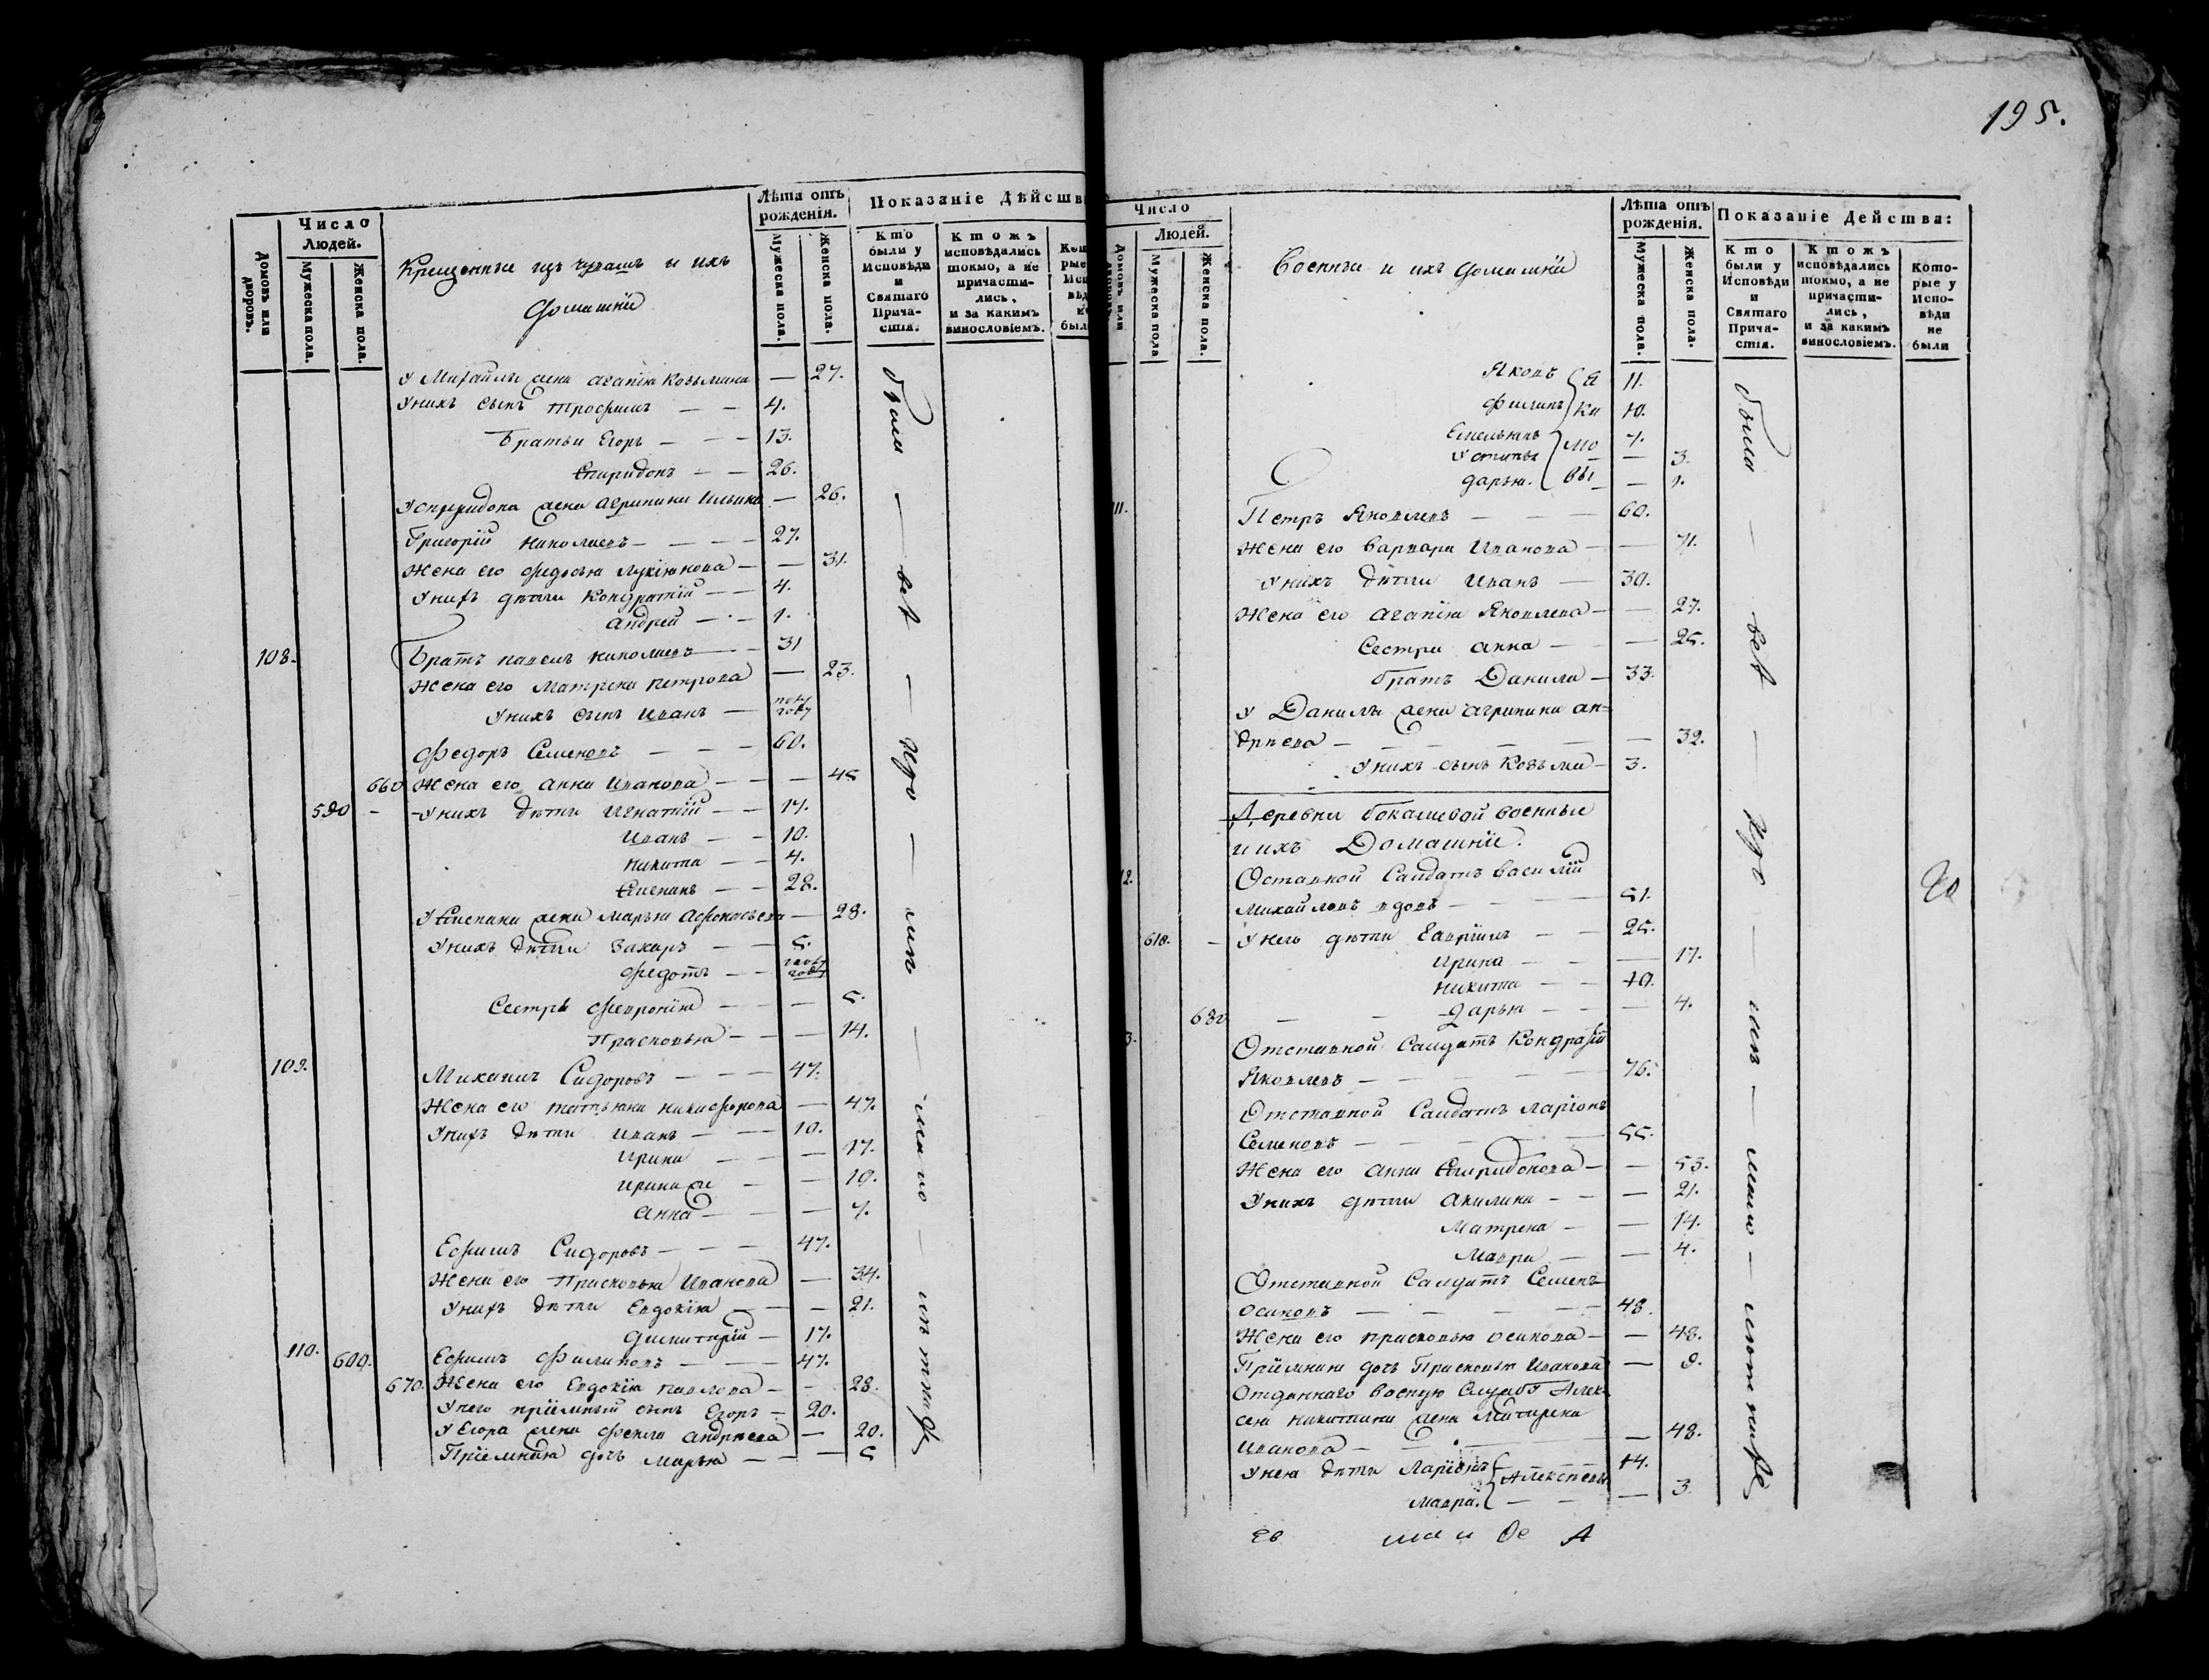 195.
Число
Людей.
Домовъ или дворовъ.
Мужеска пола.
Женска пола.
Крещенные изъ чувашъ и ихъ
домашніи
Лѣта отъ
рожденія.
Мужеска пола.
Женска пола.
Показаніе Дѣйств
Кто
были у
Исповѣди
и
Святаго
Прича-
стія.
Ктожъ
исповѣдались
токмо, а не
причасти-
лись,
и за какимъ
винословіемъ.
У Михайлы жена Агапія Козьмина — 27.
У нихъ сынъ Трофимъ — — 4.
Братья Егоръ — — — 13.
Спиридонъ — — 26.
У Спиридона жена Агрипина Ильина — 26.
Григорій Николаевъ — — — — 27.
Жена его Федосья Лукіянова — — 31.
У нихъ дѣти Кондратій — — 4.
Андрей — — 1.
108. Братъ Павелъ Николаевъ — — 31
Жена его Матрена Петрова — 23.
У нихъ сынъ Иванъ — полугоду
Федоръ Семеновъ — — — 60.
660 Жена его Анна Иванова — — — 45
590 - - У нихъ дѣти Игнатій — — 14.
Иванъ — — 10.
Никита — — 4.
Степанъ — — 28.
У Степана жена Марья Афонасьева — 28.
У нихъ дѣти Захаръ — — 5.
Федотъ — — году
Сестры Февронія — — — 5.
Прасковья — — — 14.
109. Михаилъ Сидоровъ — — — 47.
Жена его Татьяна Никифорова — 47.
У нихъ дѣти Иванъ — — — 10.
Ирина — — — 17.
— — 10.
Анна — — — 7.
Ефимъ Сидоровъ — — — 47.
Жена его Прасковья Иванова — 34.
У нихъ дѣти Евдокія — — — 21.
Димитрій — 17.
110. 600. Ефимъ Филиповъ — — — 47.
670. Жена его Евдокія Павлова — — 28.
У него пріемный сынъ Егоръ — 20.
У Егора жена Фекла Андреева — 20.
Пріемная дочь Марья — — — 5
были — всѣ — —
Число
Людей.
Домовъ или
Мужеска пола
Женска пола.
Военныи и ихъ домашніи
Лѣта отъ
рожденія.
Мужеска пола.
Женска пола.
Показаніе Действа:
Кто
были у
Исповѣди
и
Святаго
Прича-
стія.
Ктожъ
исповѣдались
токмо, а не
причасти-
лись,
и за какимъ
винословіемъ.
Кото-
рые у
Испо-
вѣди
не
были
Яковъ Я 11.
Филипъ ки 10.
Емельянъ мо 7.
Устинья — 3.
Дарья. вы — 1.
11. Петръ Яковлевъ — — — 60.
Жена его Варвара Иванова — — 71.
У нихъ дѣти Иванъ — 30.
Жена его Агапія Яковлева — — 27.
Сестра Анна — — 25.
братъ Данила — 33.
У Данилы жена Агрипина Ан=
дрѣева — — — — — — 32.
У нихъ сынъ Козьма — 3.
Деревни Бокашевой военные
и ихъ Домашніе.
12. Оставной Салдатъ Василій
Михайловъ вдовъ — — — 51.
610. - У него дѣти Гавріилъ — — 25.
Ирина — — — 17.
Никита — — 10.
680 — — Дарья — — — 4.
3. Отставной Салдатъ Кондратій
Яковлевъ — — — — — 76.
Отставной Салдатъ Ларіонъ
Семеновъ — — — — — 55.
Жена его Анна Спиридонова — — 53.
У нихъ дѣти Акилина — — — 21.
Матрена — — 14.
Мавра — — 4.
Отставной Салдатъ Семенъ
Осиповъ — — — — — 48.
Жена его Прасковья Осипова — — 48.
Пріемная дочь Прасковья Иванова — 9.
Отданнаго воєную Службу Алек-
сея Никитина жена Матрена
Иванова — — — — — 48.
У нея дѣти Ларіонъ Алексѣевы 14.
Мавра. — — — 3
были — всѣ — —